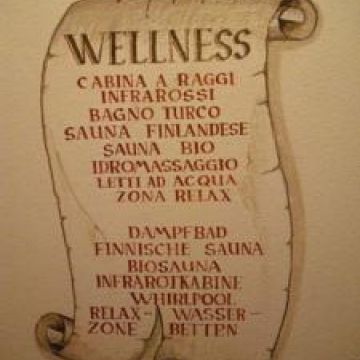 WELLNESS
CABINA A RAGGI
INFRAROSSI
BAGNO TURCO
SAUNA FINLANDESE
SAUNA BIO
IDROMASSAGGIO
LETTI AD ACQUA
ZONA RELAX
DAMPFBAD
FINNISCHE SAUNA
BIOSAUNA
INFRAROTKABINE
WHIRLPOOL
RELAX- WASSER-
ZONE BETTEN